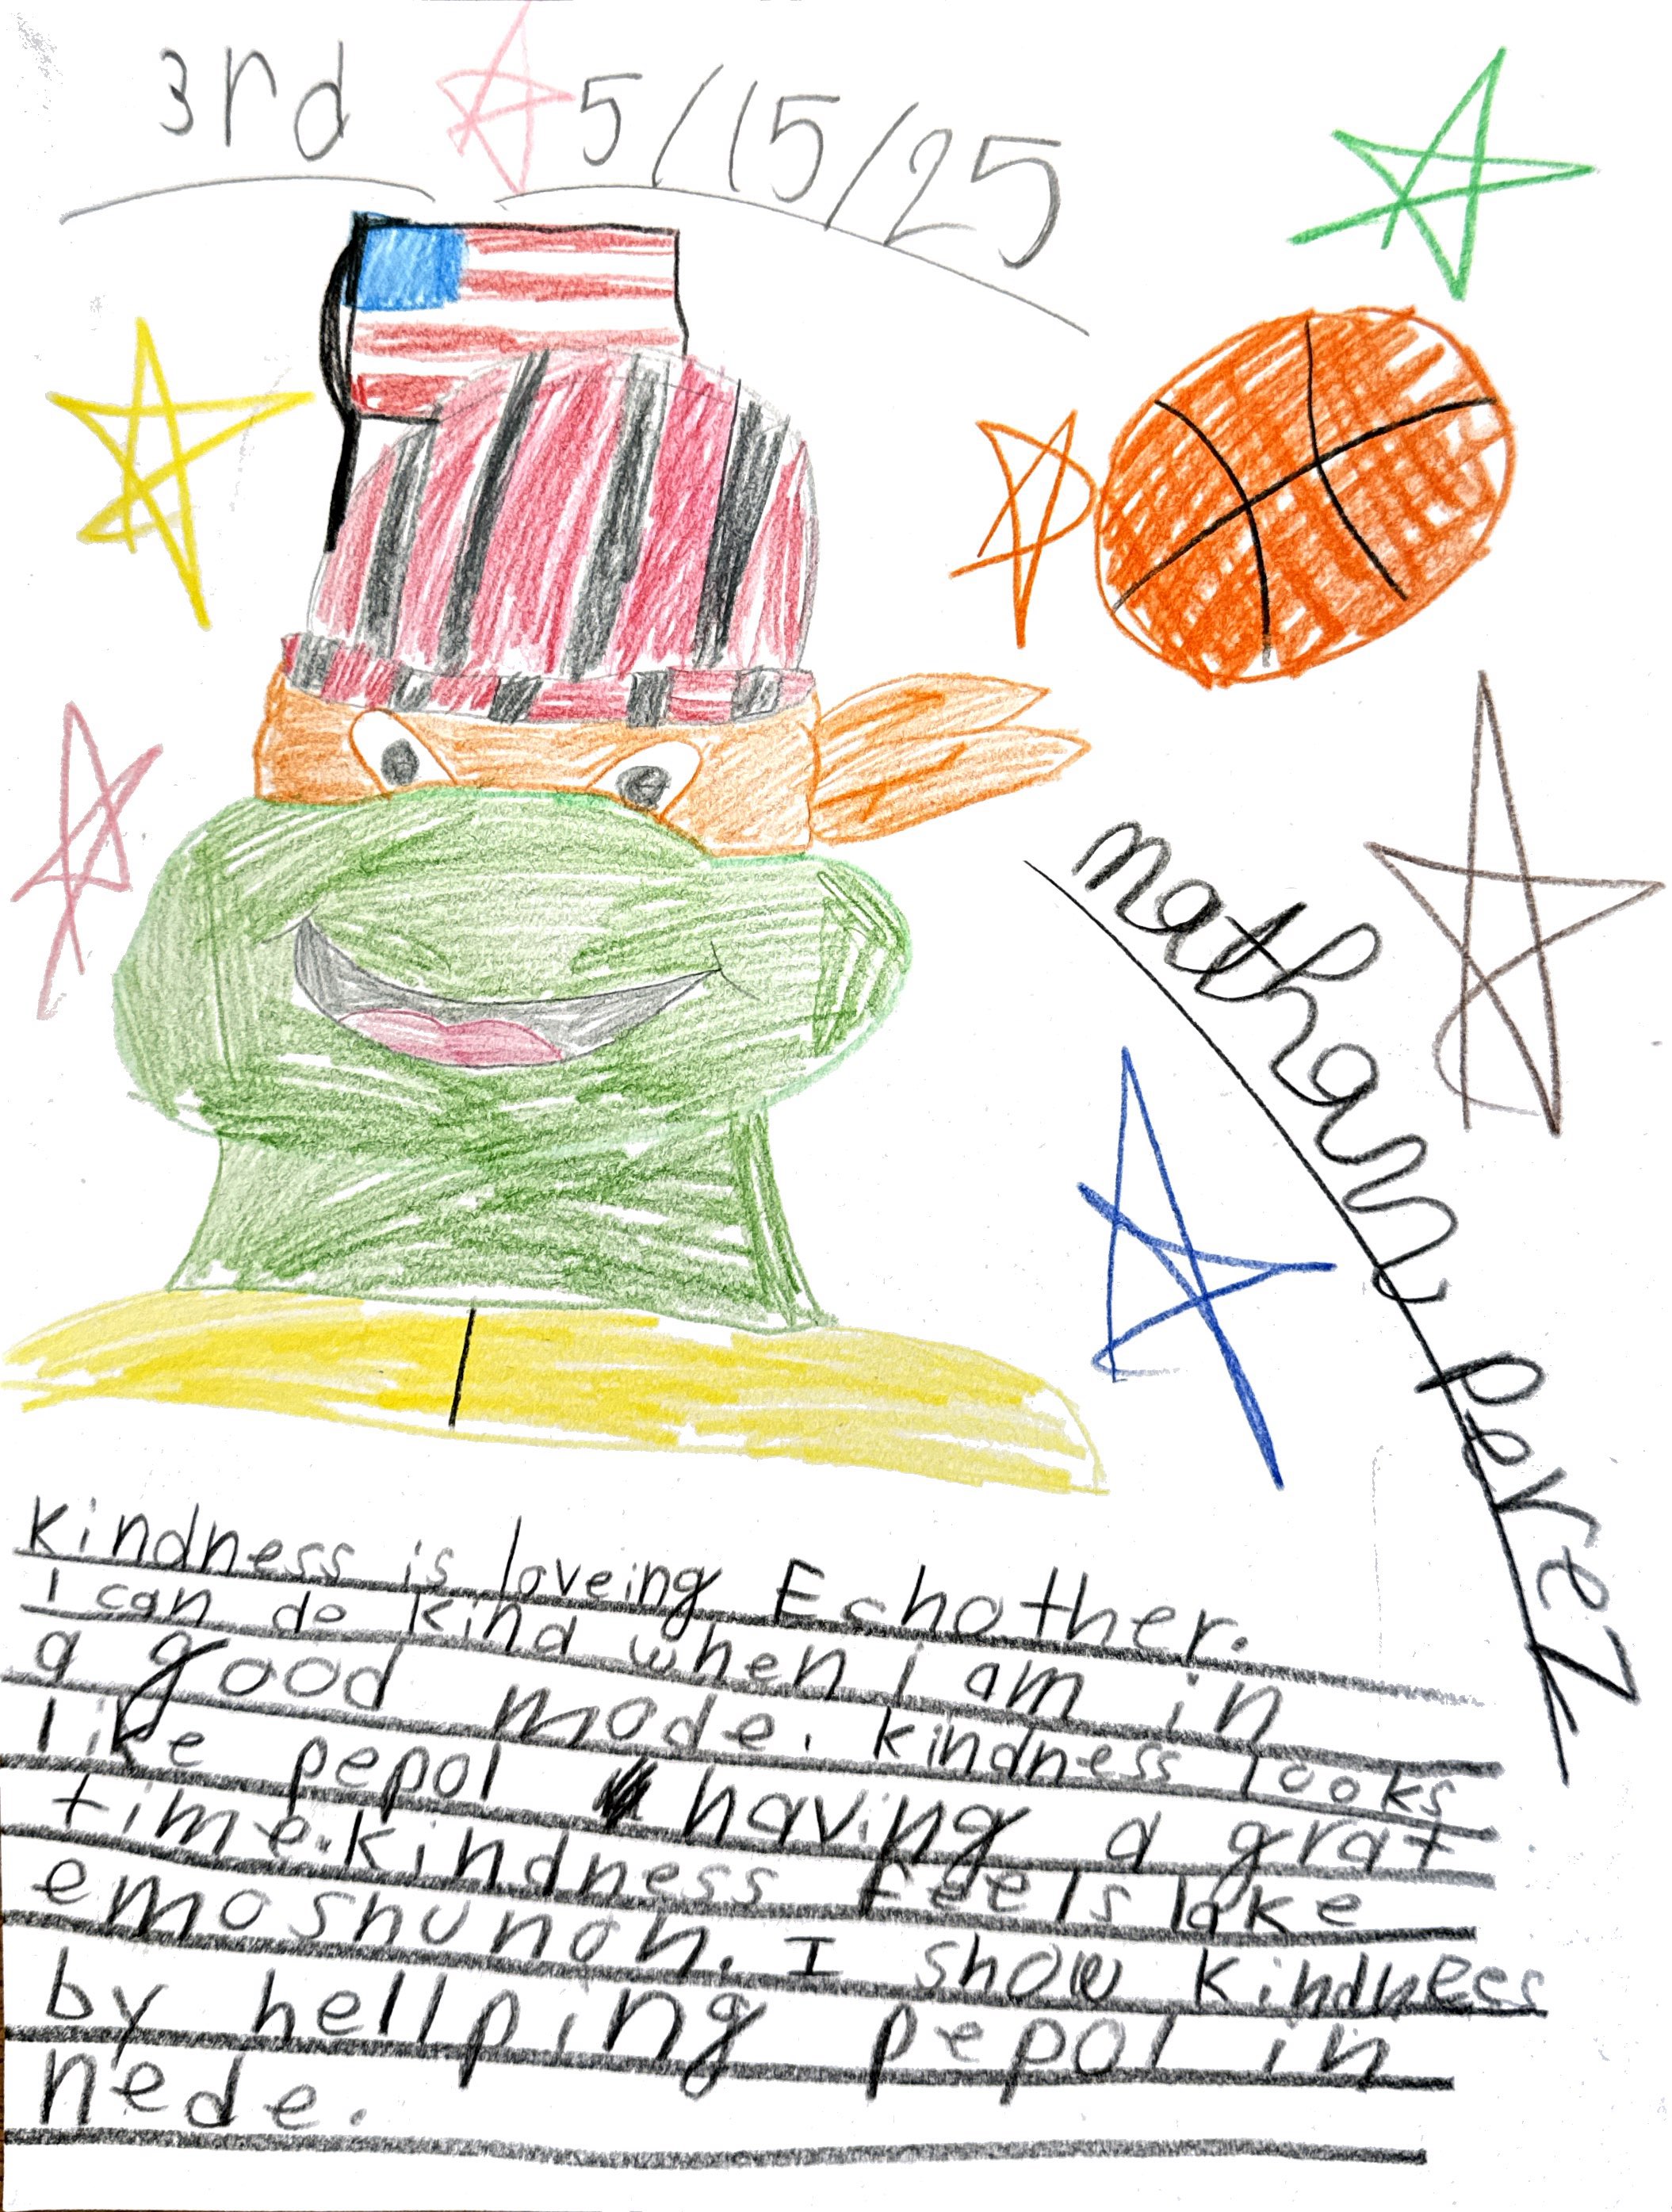 3rd 5/15/25
nathanu perez
Kindness is loveing Echother.
I can do kind when i am in
a good mode. Kindness looks
like pepol having a grat
time. Kindness feels lake
emoshunon. I show kindness
by hellping pepol in
nede.